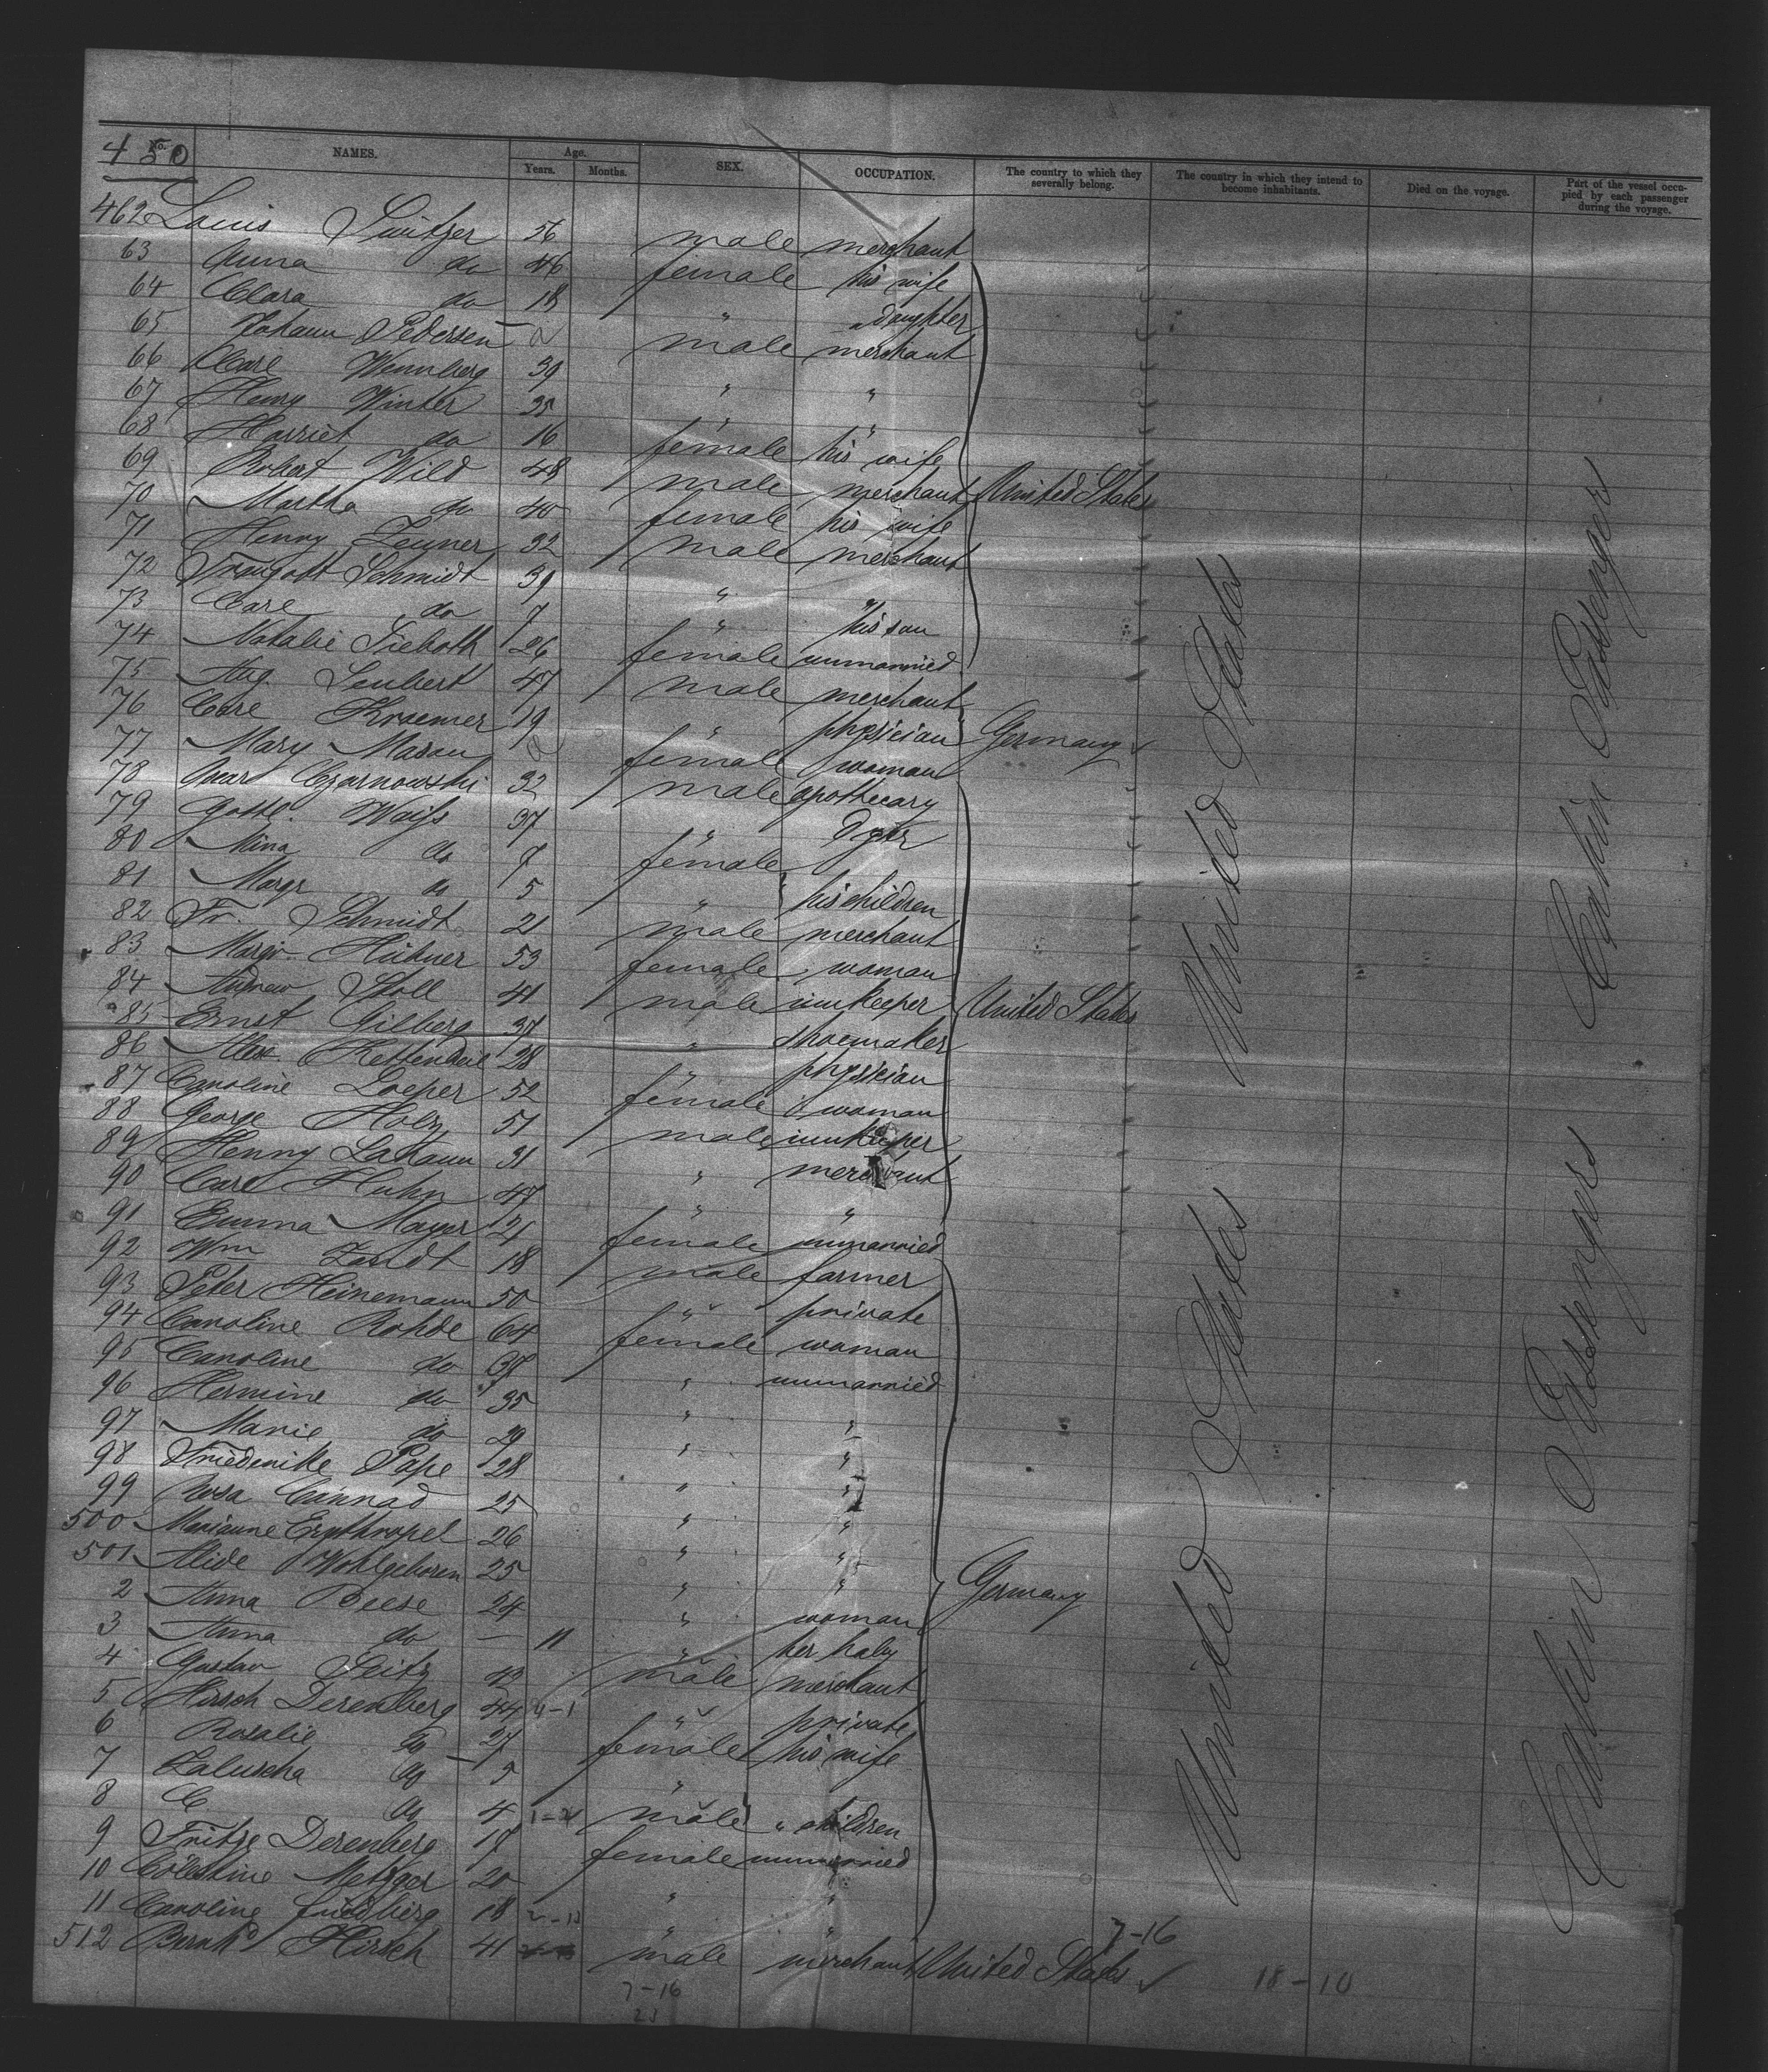 450
No. NAMES. Age. Years. Months. SEX. OCCUPATION. The country to which they severally belong. The country in which they intend to become inhabitants. Died on the voyage. Part of the vessel occupied by each passenger during the voyage.
462 Louis Switzer 56 male merchant
63 Anna do 46 female his wife
64 Clara do 18 " daughter
65 Johann Pedersen male merchant
66 Carl Wennberg 39 " "
67 Henry Winter 35 " "
68 Harriet do 16 female his wife
69 Robert Wild 48 male merchant United States
70 Martha do 40 female his wife
71 Henry Zeuner 32 male merchant
72 Traugott Schmidt 39 " "
73 Carl do 7 " his son
74 Natalie Tieboth 26 female unmarried
75 Aug. Seubert 47 male merchant
76 Carl Kraemer 19 " physician Germany
77 Mary Masau female woman
78 Czarnowski 32 male apothecary
79 Gottl. Waiss 37 " Dyer
80 Mina do 7 female
81 Margr do 5 " his children
82 Fr. Schmidt 21 male merchant
83 Margr. Hübner 53 female woman
84 Andrew Stoll 41 male innkeeper United States
85 Ernst Gilberg 37 " shoemaker
86 Alex. 28 " physician
87 Caroline Loeper 52 female woman
88 George Holz 51 male innkeeper
89 Henry Lahann 31 " merchant
90 Carl Huhn 47 " "
91 Emma Mayer 21 female unmarried
92 Wm Zandt 18 male farmer
93 Peter Heinemann 50 " private
94 Caroline Rohde 64 female woman
95 Caroline do 37 " unmarried
96 Hermine do 35 " "
97 Marie do 29 " "
98 Friederike Pape 28 " "
99 Rosa Connad 25 " "
500 Marianne Erythropel 26 " "
501 Alide Wohlgeboren 25 " " Germany
2 Anna Beese 24 " woman
3 Anna do — 11 " her baby
4 Gustav Seitz 42 male merchant
5 Hirsch Derenberg 44 " private
6 Rosalie do 27 female his wife
7 Zaluscha do 5 "
8 C do 4 male " children
9 Fritze Derenberg 17 female unmarried
10 Cölestine Metzger 20 " "
11 Caroline Friedberg 18 " "
512 Bernhd Hirsch 41 male merchant United States
7-16
18-10
7-16
23
United States
United States
Cabin Passengers
Cabin Passengers